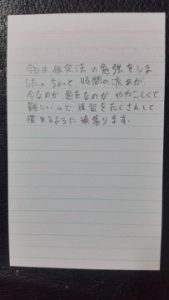 今日は仮定法の勉強をしま
した。ちょっと時間の流れが
今なのか過去なのかややこしくて
難しいので練習をたくさんして
慣れるように頑張ります。